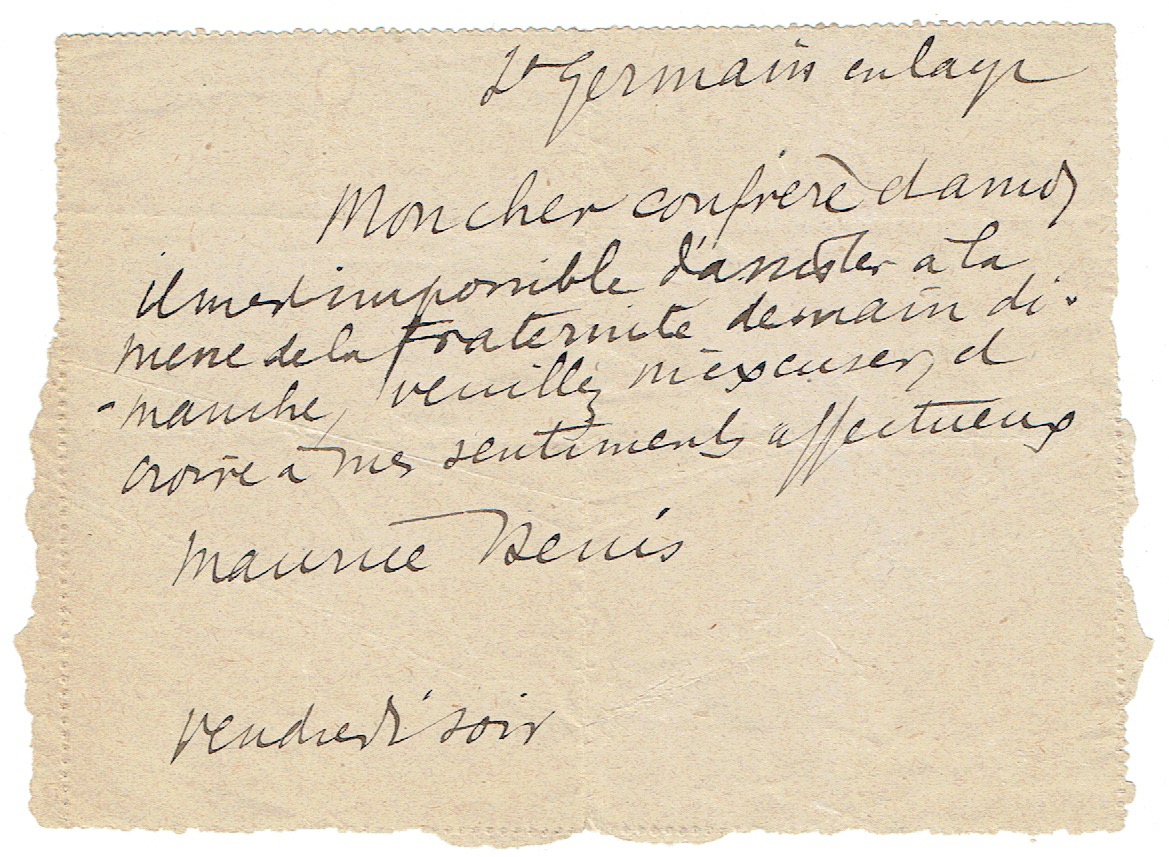 St Germain en laye
Mon cher confrère et ami,
il m'est impossible d'assister à la
messe de la fraternité demain di-
-manche, veuillez m'excuser, et
croire à mes sentiments affectueux
Maurice Denis
vendredi soir